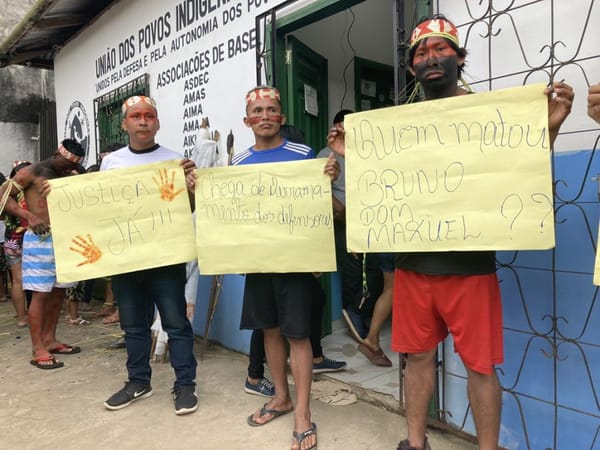 UNIÃO DOS POVOS INDÍGEN
UNIDOS PELA DEFESA E PELA AUTONOMIA DOS PO
ASSOCIAÇÕES DE BASE
ASDEC
AMAS
AIMA
JUSTIÇA
JÁ!!!
Chega de Derrama-
mento dos difensores
QUEM matou
BRUNO
DOM
MAXUEL ??